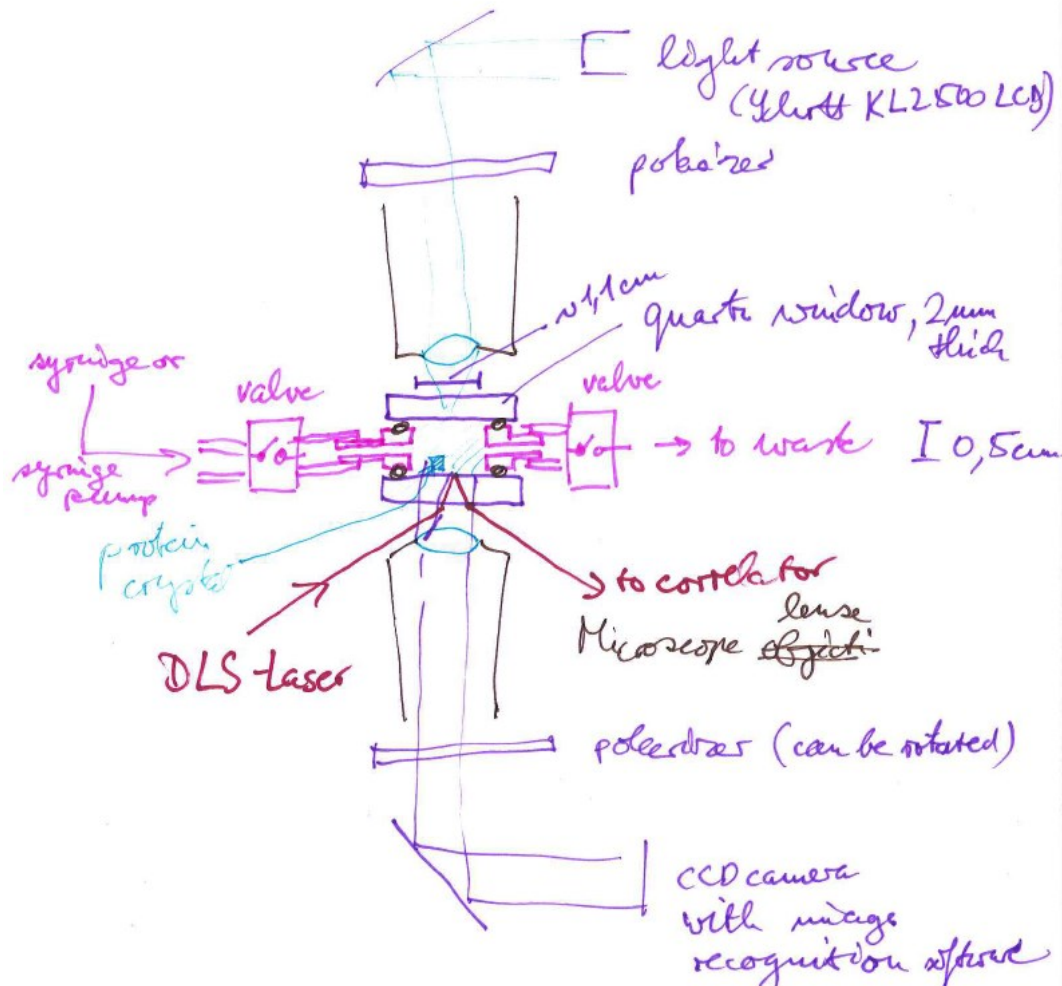 light source
(Schott KL2500 LCD)
polarizer
~1,1cm
quartz window, 2mm
thick
syringe or
valve
valve
syringe
pump
→ to waste
I 0,5cm
protein
crystal
to correlator
lense
Microscope objecti
DLS-Laser
polarizer (can be rotated)
CCD camera
with image
recognition software